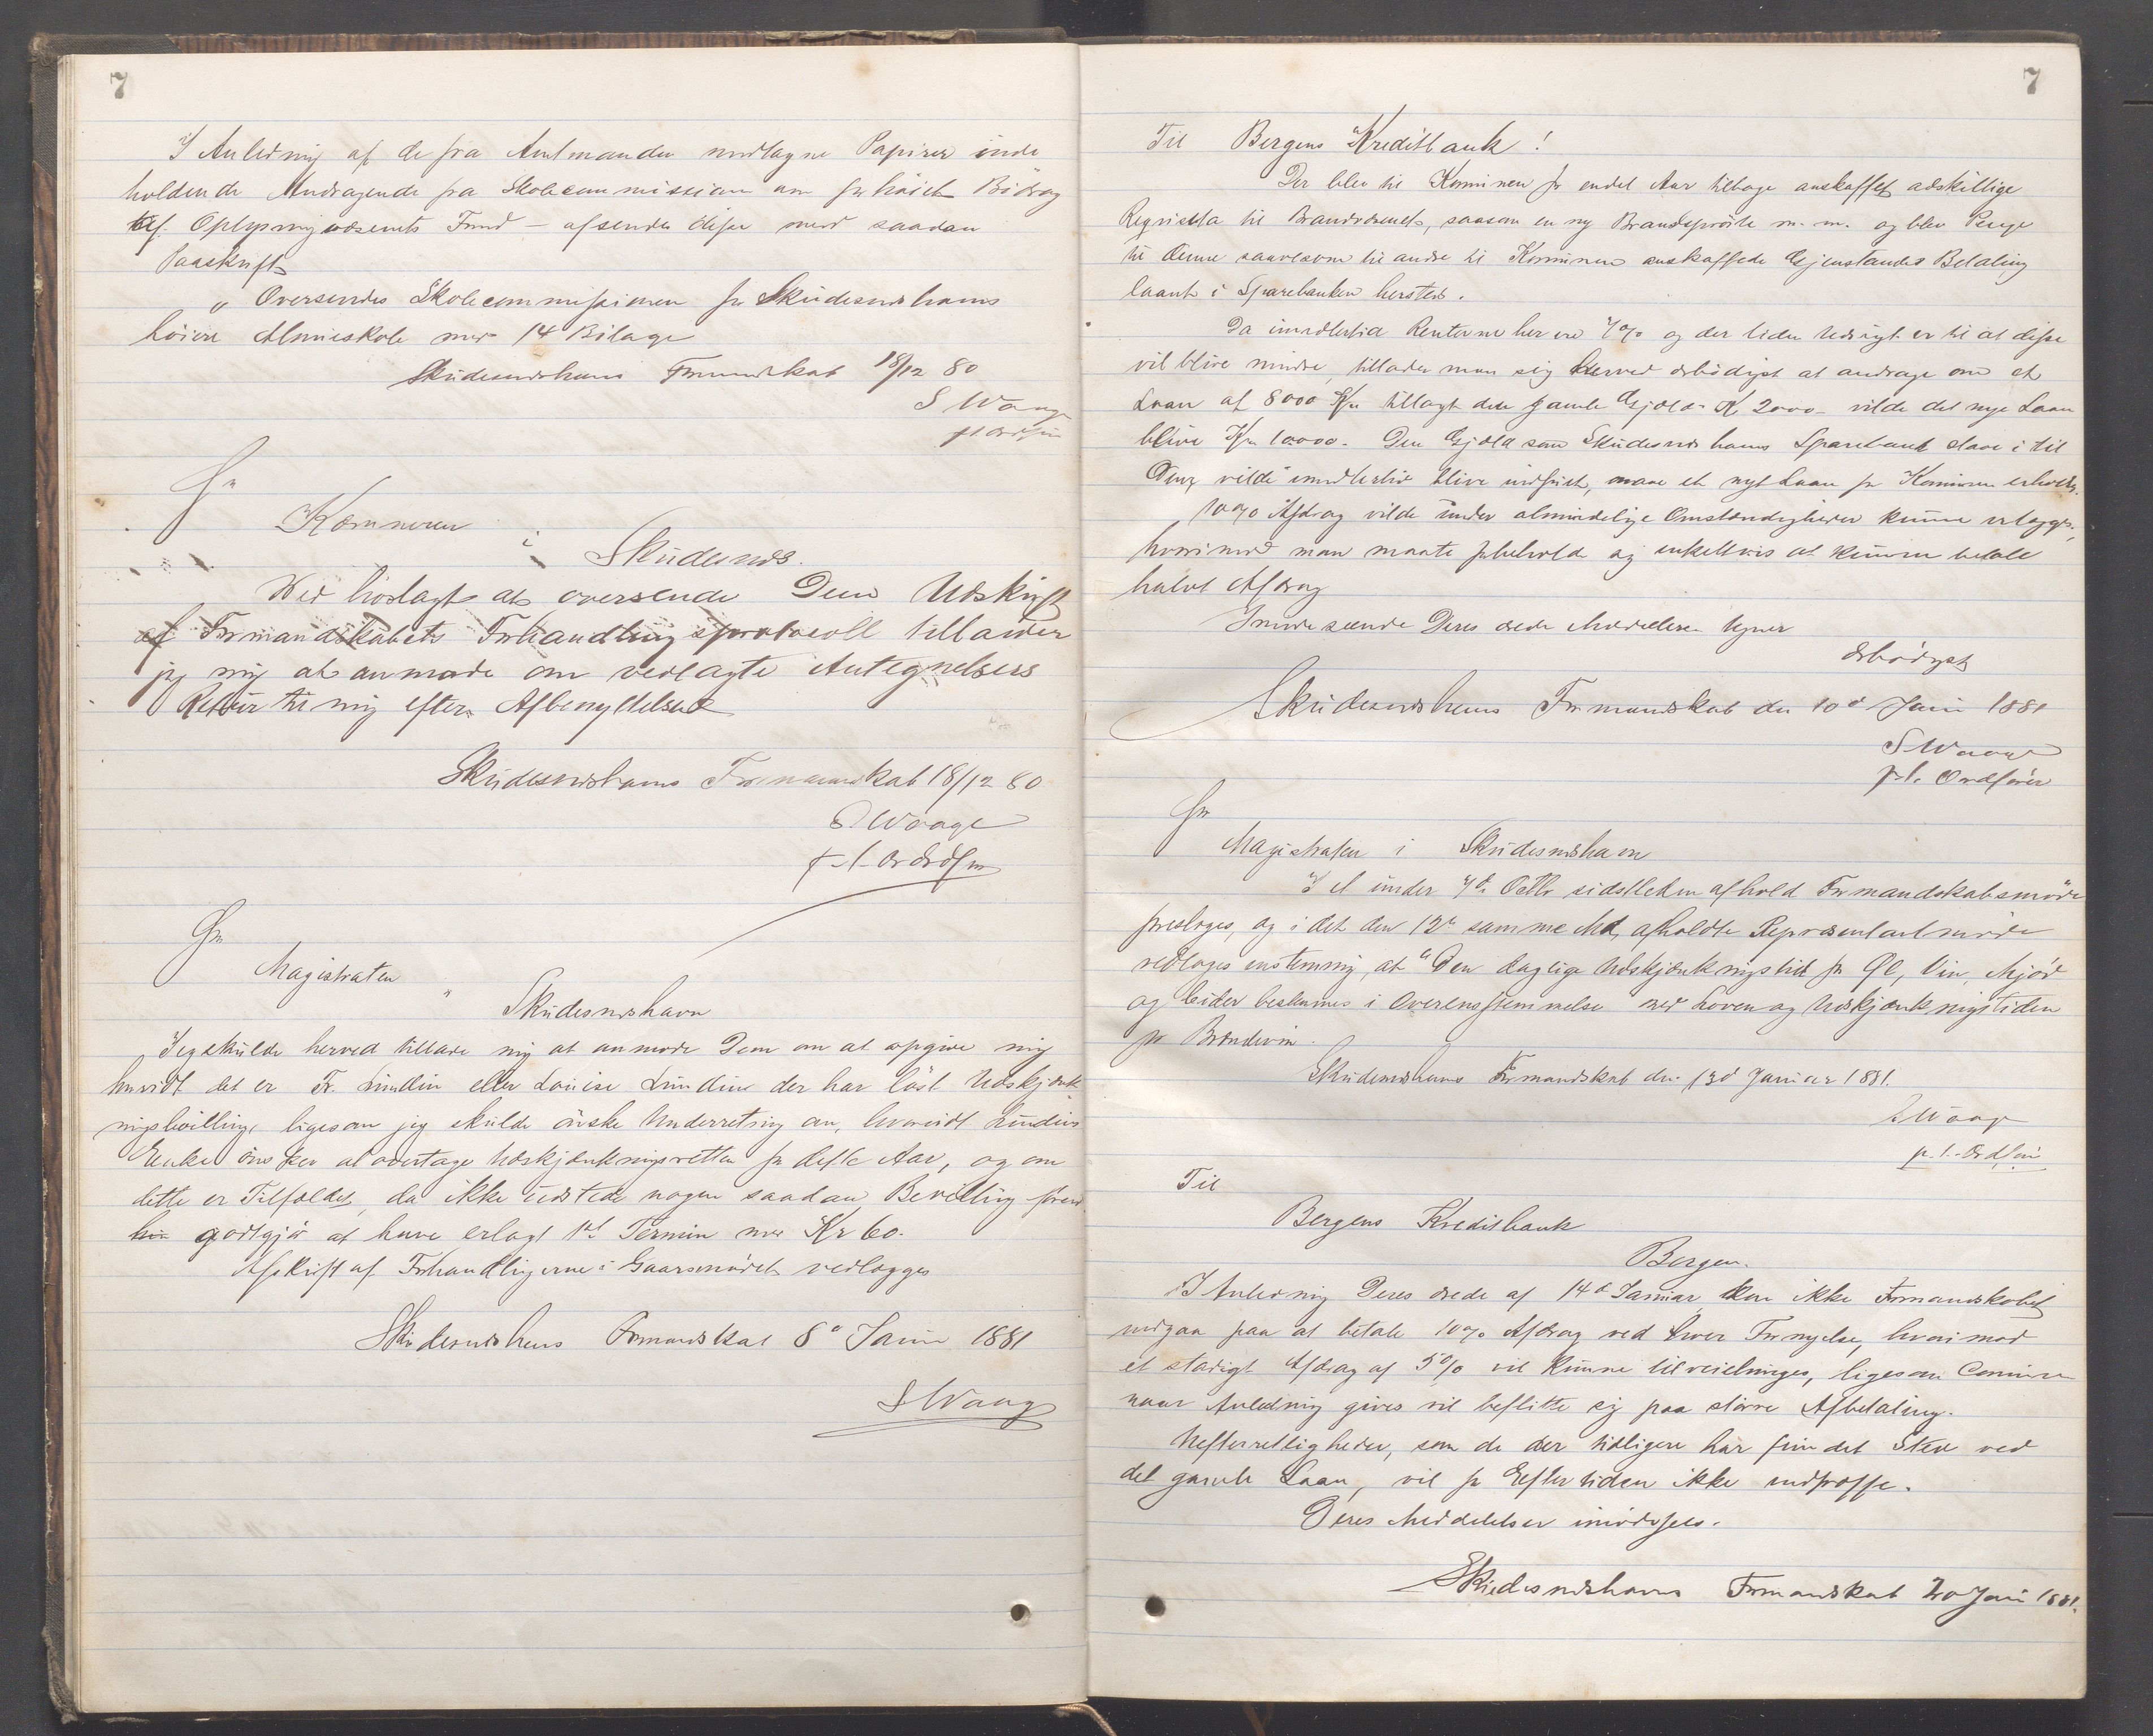 7
I Anledning af de fra Amtmanden modtagne Papirer inde
holdende Andragende fra Skolecommissionen om forhöiet Bidrag
af Oplysningsvæsenets Fond – afsendes disse med saadan
Paaskrift
" Oversendes Skolecommissionen for Skudesnæshavns
höiere Almueskole med 14 Bilage
Skudesnæshavns Formandskab 18/12 80
S Waage
p t Ordförer
Hr
Kæmneren
i Skudesnæs.
Ved hoslagt at oversende Dem Udskrift
af Formandskabets Forhandlingsprotocoll tillader
jeg mig at anmode om vedlagte Antegnelsers
Retur til mig efter Afbenyttelsen
Skudesnæshavns Formandskab 18/12 80
S Waage
p. t. Ordförer
Hr
Magistraten
" Skudesnæshavn
Jeg skulde herved tillade mig at anmode Dem om at opgive mig
hvorvidt det er Fr. Lundin eller Louise Lundine der har löst Udskjænk
ningsbevilling, ligesom jeg skulde önske Underretning om, hvorvidt Lundins
Enke önsker at overtage Udskjænkningsretten for dette Aar, og om
dette er Tilfældet, da ikke udstede nogen saadan Bevilling förend
hun godtgjör at have erlagt 1st Termin med Kr 60.
Afskrift af Forhandlingerne i Gaarsmödet vedlægges
Skudesnæshavns Formandskab 8de Januar 1881
S Waage
7
Til Bergens Kreditbank!
Der blev til Kommunen for endel Aar tilbage anskaffet adskillige
Reqvisita til Brandvæsenet, saasom en ny Brandspröite m. m. og blev Penge
til denne saavelsom til andre til Kommunen anskaffede Gjenstandes Betaling
laant i Sparebanken hersteds.
Da imidlertid Renterne her ere 7% og der liden Udsigt er til at disse
vil blive mindre, tillader man sig herved ærbödigst at andrage om et
Laan af 8000 Kr tillagt den gamle Gjæld Kr 2000 – vilde det nye Laan
blive Kr 10000. Den Gjæld som Skudesnæshavns Sparebank staar i til
Dem, vilde imidlertid blive indfriet, naar et nyt Laan for Kommunen erholdes.
10% Afdrag vilde under almindelige Omstændigheder kunne erlægges,
hvorimod man maatte forbeholde sig enkeltvis at kunne betale
halvt Afdrag
Imödeseende Deres ærede Meddelelse tegner
ærbödigst
Skudesnæshavns Formandskab den 10de Januar 1881
S Waage
p. t. Ordförer
Hr
Magistraten i Skudesnæshavn
I et under 7de Octbr sidstleden afhold Formandskabsmöde
foresloges, og i det den 12te samme Md, afholdte Repræsentantmöde
vedtoges enstemmig, at "Den daglige Udskjænkningstid for Öl, Vin, Mjöd
og Cider bestemmes i Overensstemmelse med Loven og Udskjænkningstiden
for Brændevin.
Skudesnæshavns Formandskab den 13de Januar 1881.
S Waage
p. t. Ordförer
Til
Bergens Kreditbank
Bergen.
I Anledning Deres ærede af 14de Januar, kan ikke Formandskabet
indgaa paa at betale 10% Afdrag ved hver Fornyelse, hvorimod
et stadigt Afdrag af 5% vil kunne tilveiebringes, ligesom Communen
naar Anledning gives vil beflitte sig paa större Afbetaling.
Uefterretligheder, som de der tidligere har fundet Sted ved
det gamle Laan, vil for Eftertiden ikke indtræffe.
Deres Meddelelser imödesees.
Skudesnæshavns Formandskab 20 Jan 1881.